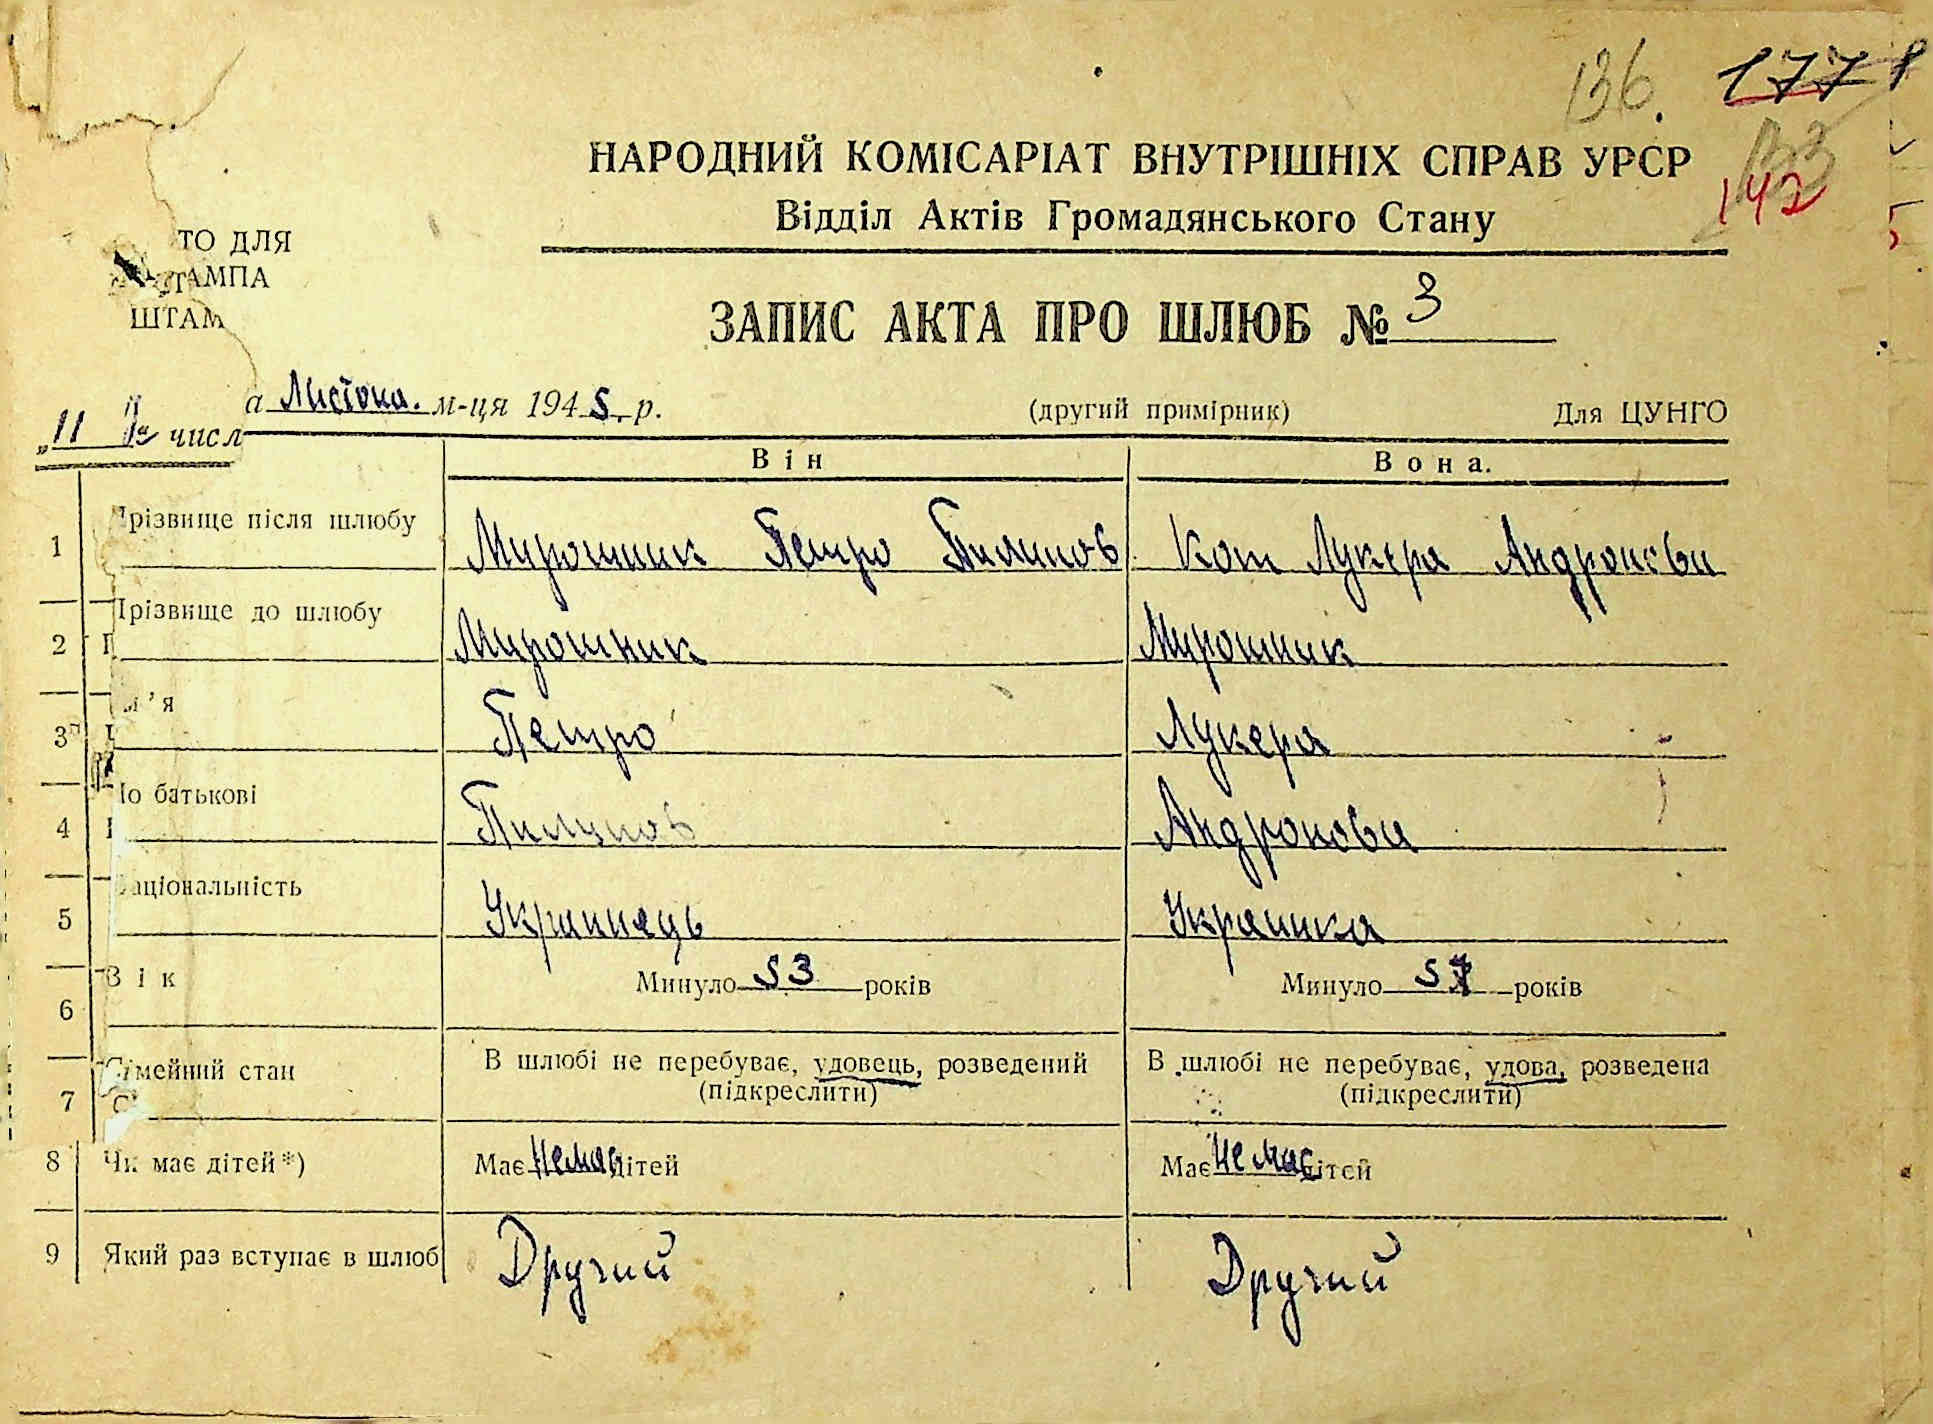 136. 177
133
142
НАРОДНИЙ КОМІСАРІАТ ВНУТРІШНІХ СПРАВ УРСР
Відділ Актів Громадянського Стану
ТО ДЛЯ
ТАМПА
ШТАМ
ЗАПИС АКТА ПРО ШЛЮБ № 3
„11 числа Листопа. м-ця 1945 р. (другий примірник) Для ЦУНГО
Він Вона.
1 Прізвище після шлюбу Мирошник Петро Пилипов Кот Лукера Андронови
2 Прізвище до шлюбу Мирошник Мирошник
3 м'я Петро Лукера
4 По батькові Пилипов Андронови
5 Національність Украинець Украинка
6 Вік Минуло 53 років Минуло років
7 Сімейний стан В шлюбі не перебуває, удовець, розведений В шлюбі не перебуває, удова, розведена
(підкреслити) (підкреслити)
8 Чи має дітей*) Має немає дітей Має не має дітей
9 Який раз вступає в шлюб Другий Другий